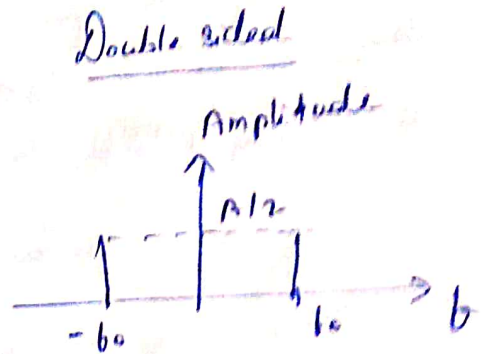 Double sided
Amplitude
A/2
-f₀ f₀ f